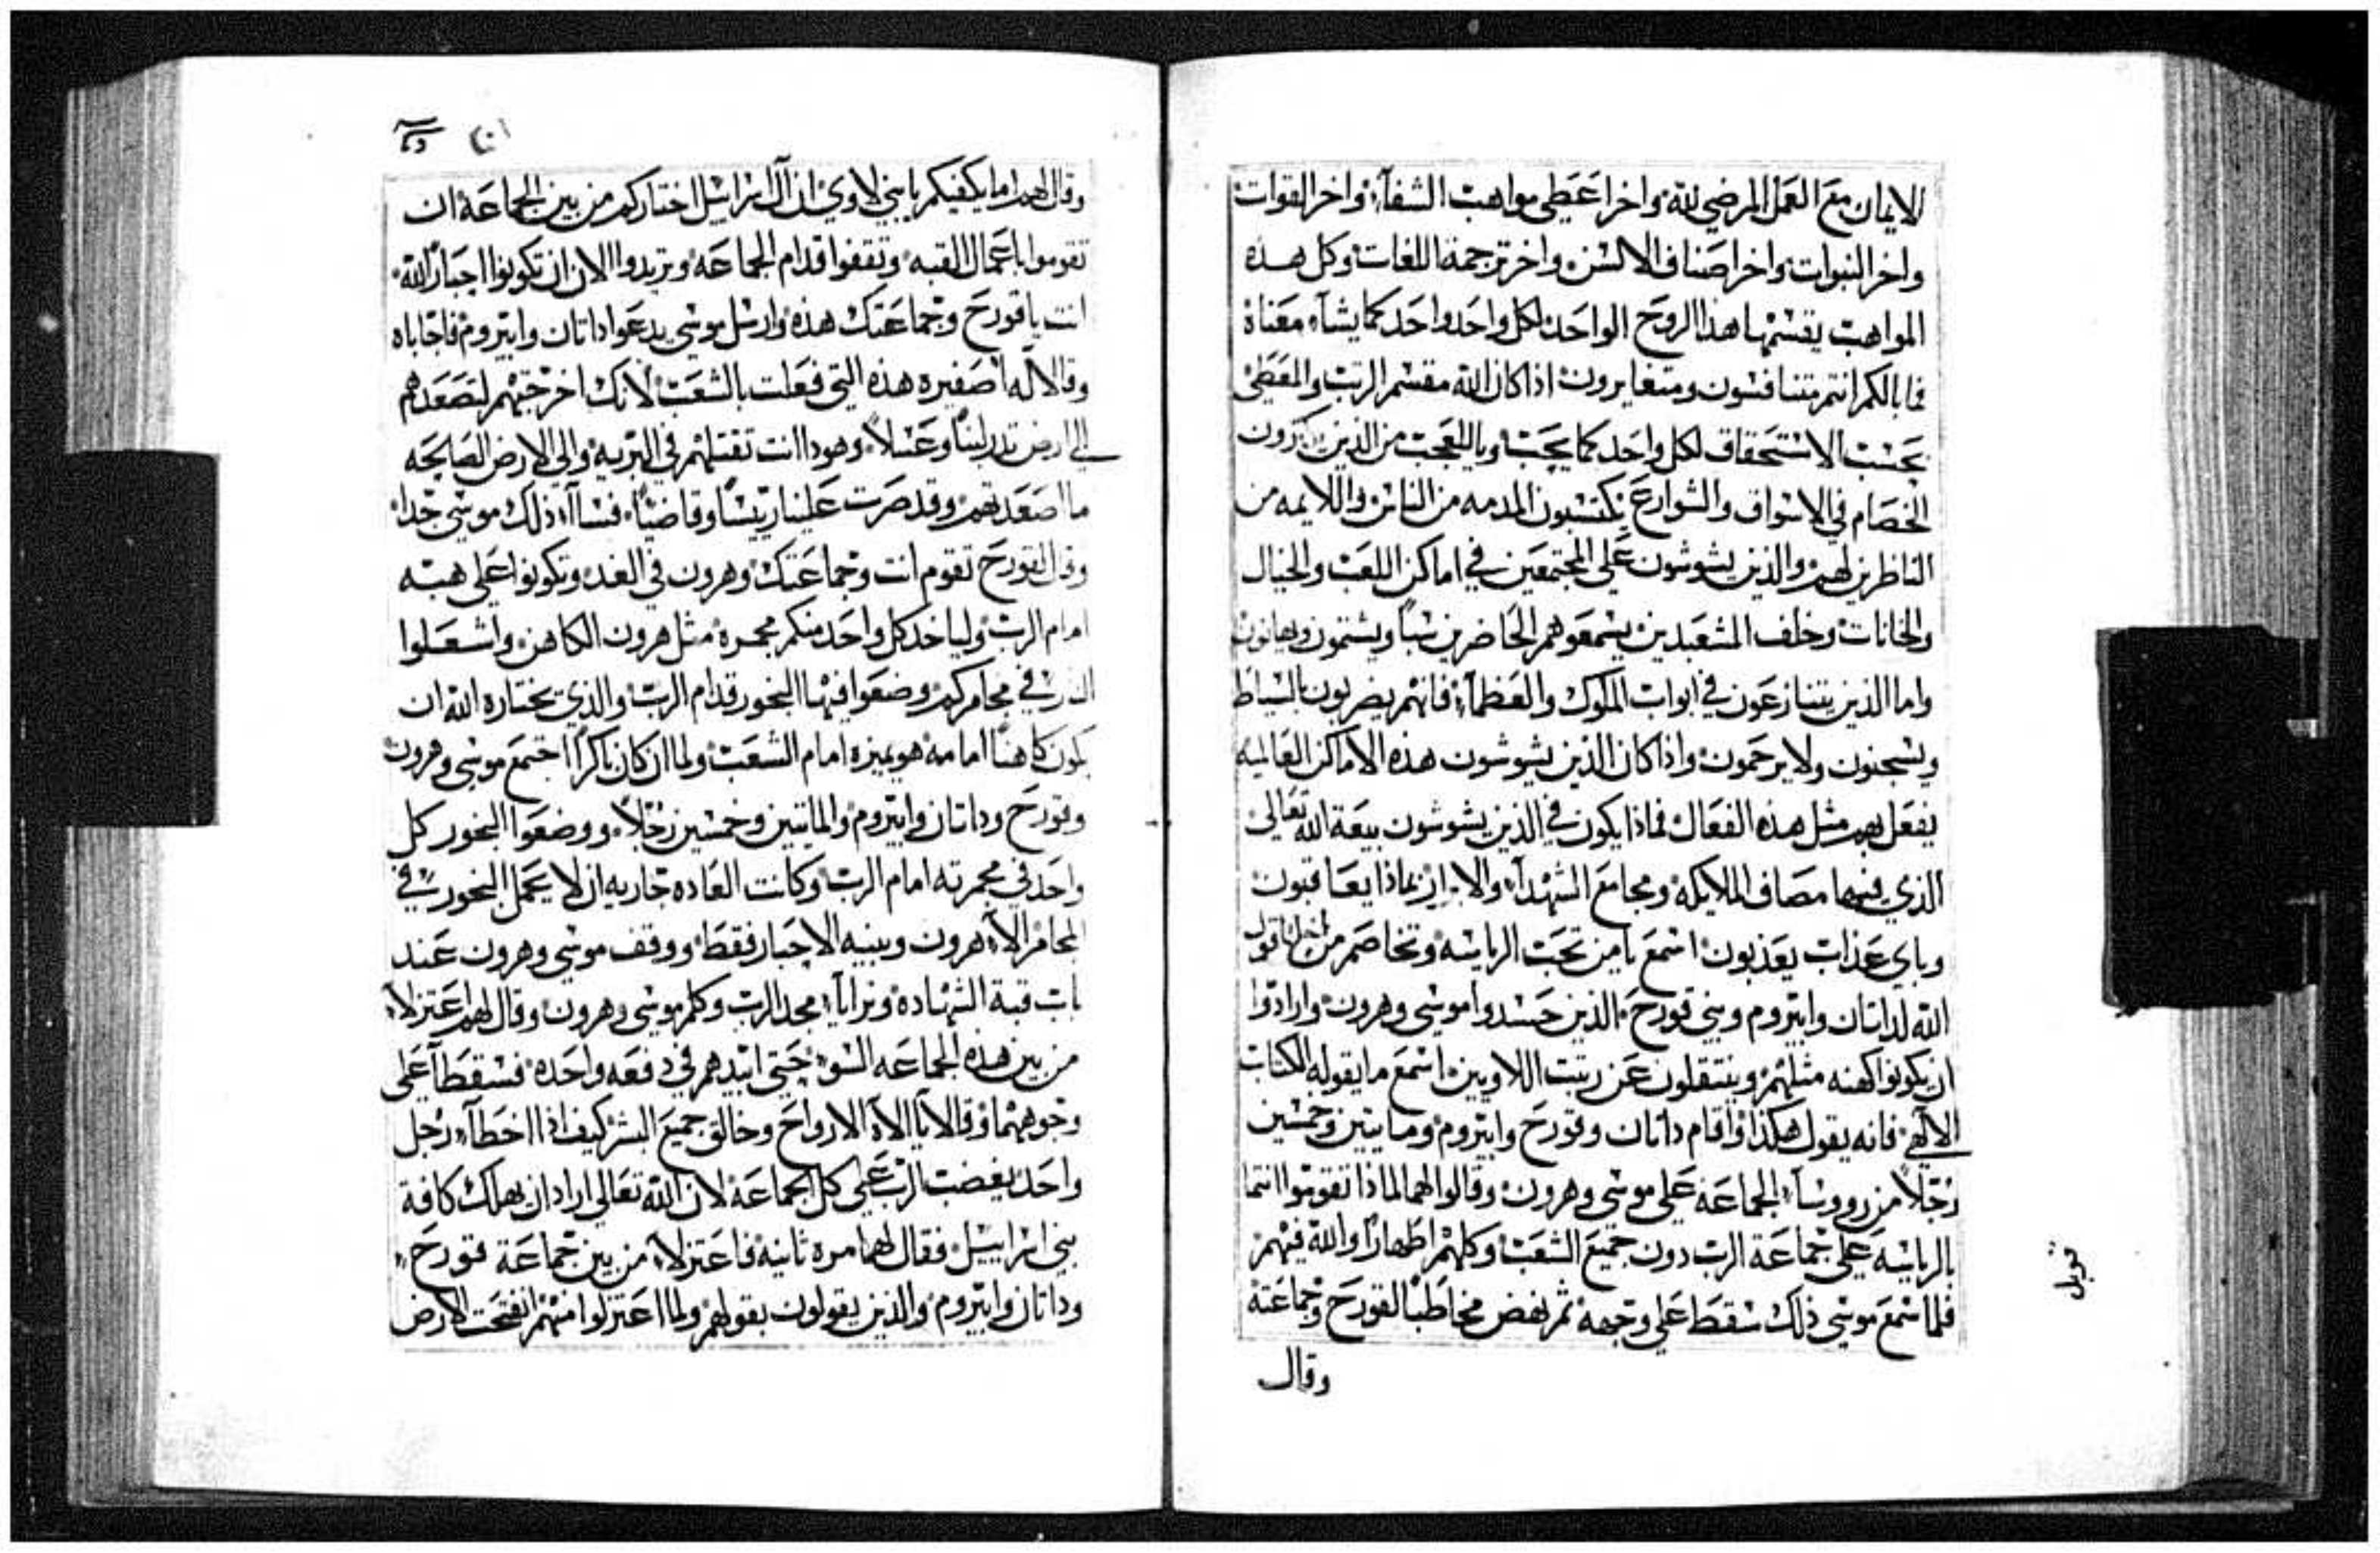 الايمان مع العمل المرضي لله واخر اعطي مواهب الشفآء واخر القوات
واخر النبوات واخر اصناف الالسن واخر ترجمة اللغات وكل هذه
المواهب يقسمها هذا الروح الواحد لكل واحد واحد كما يشآء معناه
فما بالكم انتم متنافسون ومتغايرون اذا كان الله مقسم الرتب والمعطي
بحسب الاستحقاق لكل واحد كما يجب وياللعجب من الذين
الخصام في الاسواق والشوارع يكتسبون المدمه من الناس واللايمه من
الناظرين لهم والذين يشوشون علي المجتمعين في اماكن اللعب والخيال
والخانات وخلف المتعبدين يسمعوهم الحاضرين سبا ويشتمون ويهانون
واما الذين يتنازعون في ابواب الملوك والعظمآء فانهم يضربون بالسياط
ويسجنون ولا يرحمون واذا كان الذين يشوشون هذه الاماكن العالميه
يفعل بهم مثل هذه الفعال فماذا يكون في الذين يشوشون بيعة الله تعالي
الذي فيها مصاف الملايكه ومجامع الشهدآء والابرار بماذا يعاقبون
وباي عذاب يعذبون اسمع يا من تحب الرياسه وتخاصم من اجلها قول
الله لداتان وابيروم وبني قورح الذين حسدوا موسي وهرون وارادوا
ان يكونوا كهنه مثلهم وينتقلون عن رتبت اللاويين اسمع ما يقوله الكتاب
الالهي فانه يقول هكذا واقام داتان وقورح وابيروم وما يتين وخمسين
رجلا من رووسآء الجماعه علي موسي وهرون وقالوا لهما لماذا تقوموا انتما
بالرياسه علي جماعة الرب دون جميع الشعب وكلهم اطهارا والله فيهم
فلما سمع موسي ذلك سقط علي وجهه ثم نهض مخاطبا لقورح وجماعته
وقال
قوبل
وقال لهم اما يكفيكم يا بني لاوي ان اله اسراييل اختاركم من بين الجماعه ان
تقوموا باعمال القبه وتقفوا قدام الجماعه وتريدوا الان ان تكونوا احبار الله
انت يا قورح وجماعتك هذه وارسل موسي يدعوا داتان وابيروم فاجاباه
وقالا له اصغيره هذه التي فعلت بالشعب لانك اخرجتهم لتصعدهم
الي ارض تدر لبنا وعسلا وهودا انت تقتلهم في البريه والي الارض الصالحه
ما اصعدتهم وقد صرت علينا رييسا وقاضيا فسآء ذلك موسي جدا
وقال لقورح تقوم انت وجماعتك وهرون في الغد وتكونوا علي هبه
امام الرب ولياخد كل واحد منكم مجمره مثل هرون الكاهن واشعلوا
النار في مجامركم وضعوا فيها البخور قدام الرب والذي يختاره الله ان
يكون كاهنا امامه هو يميزه امام الشعب ولما ان كان باكرا اجتمع موسي وهرون
وقورح وداتان وابيروم والمايتين وخمسين رجلا ووضعوا البخور كل
واحد في مجمرته امام الرب وكانت العاده جاريه ان لا يحمل البخور في
المجامر الا هرون وبنيه الاحبار فقط ووقف موسي وهرون عند
باب قبة الشهاده وترايا مجد الرب وكلم موسي وهرون وقال لهم اعتزلا
من بين هذه الجماعه السوء حتي ابيدهم في دفعه واحده فسقطا علي
وجوههما وقالا يا الاه الارواح وخالق جميع البشر كيف اذا اخطآء رجل
واحد يغضب الرب علي كل الجماعه لان الله تعالي اراد ان يهلك كافة
بني اسراييل فقال لهما مره ثانيه فاعتزلا من بين جماعة قورح
وداتان وابيروم والذين يقولون بقولهم ولما اعتزلوا منهم انفتحت الارض